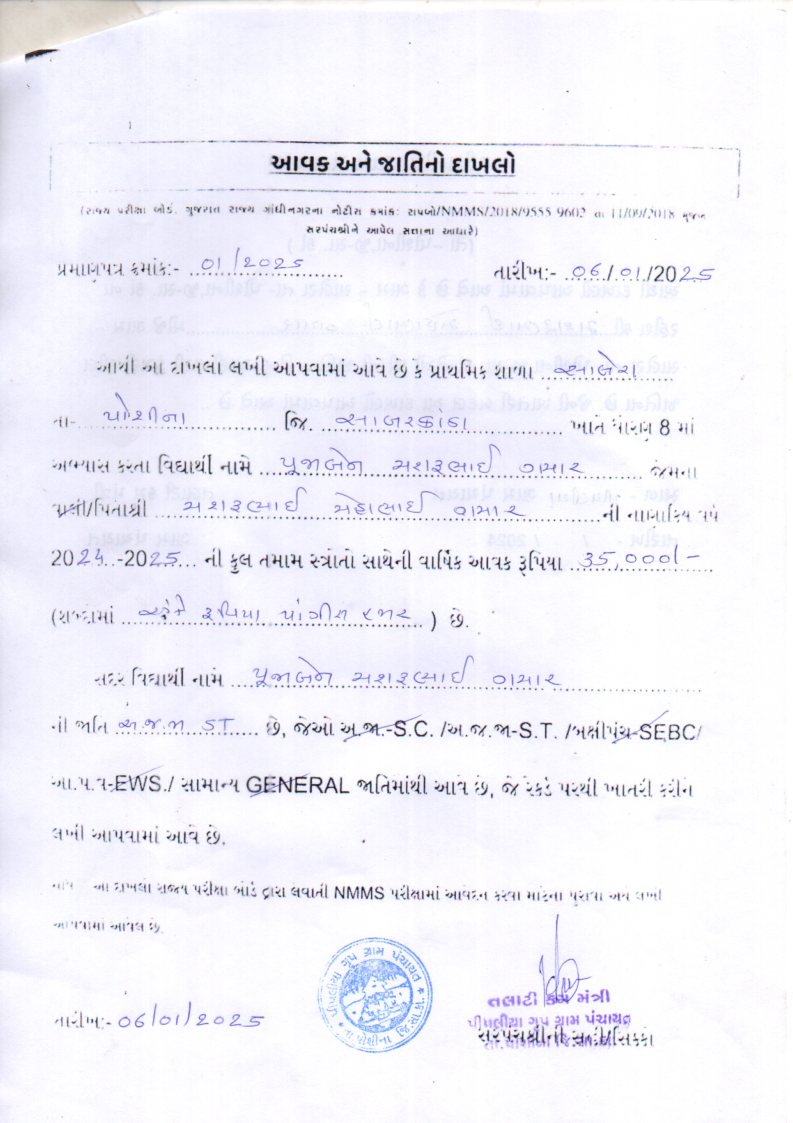 આવક અને જાતિનો દાખલો
(રાજ્ય પરીક્ષા બોર્ડ. ગુજરાત રાજ્ય ગાંધીનગરના નોટીસ ક્રમાંક: રાપબો/NMMS/2018/9555-9602 તા 11/09/2018 મુજબ
સરપંચશ્રીને આપેલ સત્તાના આધારે)
પ્રમાણપત્ર ક્રમાંક:- 01/2025 તારીખ:- 06/01/2025
આથી આ દાખલો લખી આપવામાં આવે છે કે પ્રાથમિક શાળા સાલેરા
તા- પોશીના જિ. સાબરકાંઠા ખાતે ધોરણ 8 માં
અભ્યાસ કરતા વિદ્યાર્થી નામે પૂજાબેન મશરૂભાઈ ગમાર જેમના
વાલી/પિતાશ્રી મશરૂભાઈ ગમાર ની નાણાકિય વર્ષ
2024-2025 ની કુલ તમામ સ્ત્રોતો સાથેની વાર્ષિક આવક રૂપિયા 35,000/-
(શબ્દોમાં અંકે રૂપિયા પાંત્રીસ હજાર) છે.
સદર વિદ્યાર્થી નામે પૂજાબેન મશરૂભાઈ ગમાર
ની જાતિ અ.જ.જા ST છે, જેઓ અ.જા.-S.C. /અ.જ.જા-S.T. /બક્ષીપંચ-SEBC/
આ.પ.વ-EWS./ સામાન્ય GENERAL જાતિમાંથી આવે છે, જે રેકર્ડ પરથી ખાતરી કરીને
લખી આપવામાં આવે છે.
નોંધ આ દાખલો રાજ્ય પરીક્ષા બોર્ડ દ્વારા લેવાતી NMMS પરીક્ષામાં આવેદન કરવા માટેના પુરાવા અર્થે લખી
આપવામાં આવેલ છે.
પીપલીયા ગૃપ ગ્રામ પંચાયત
તા.પોશીના
તલાટી કમ મંત્રી
પીપલીયા ગૃપ ગ્રામ પંચાયત
તા.પોશીના
તારીખ:- 06/01/2025 સરપંચશ્રીની સહી/સિક્કો